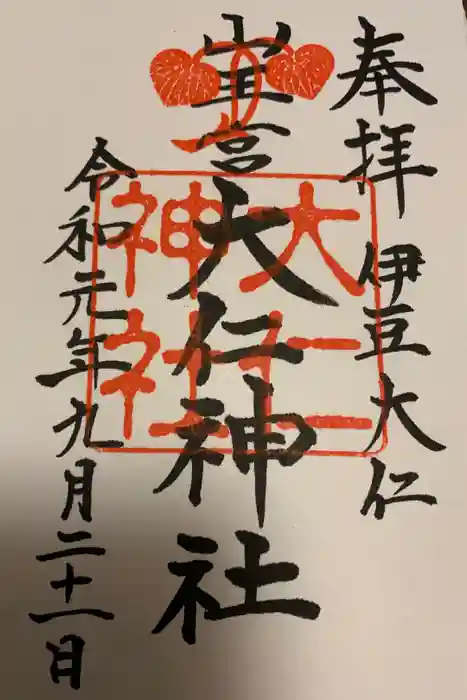 奉拝 伊豆大仁
大仁神社
令和元年九月二十一日
大仁
神社